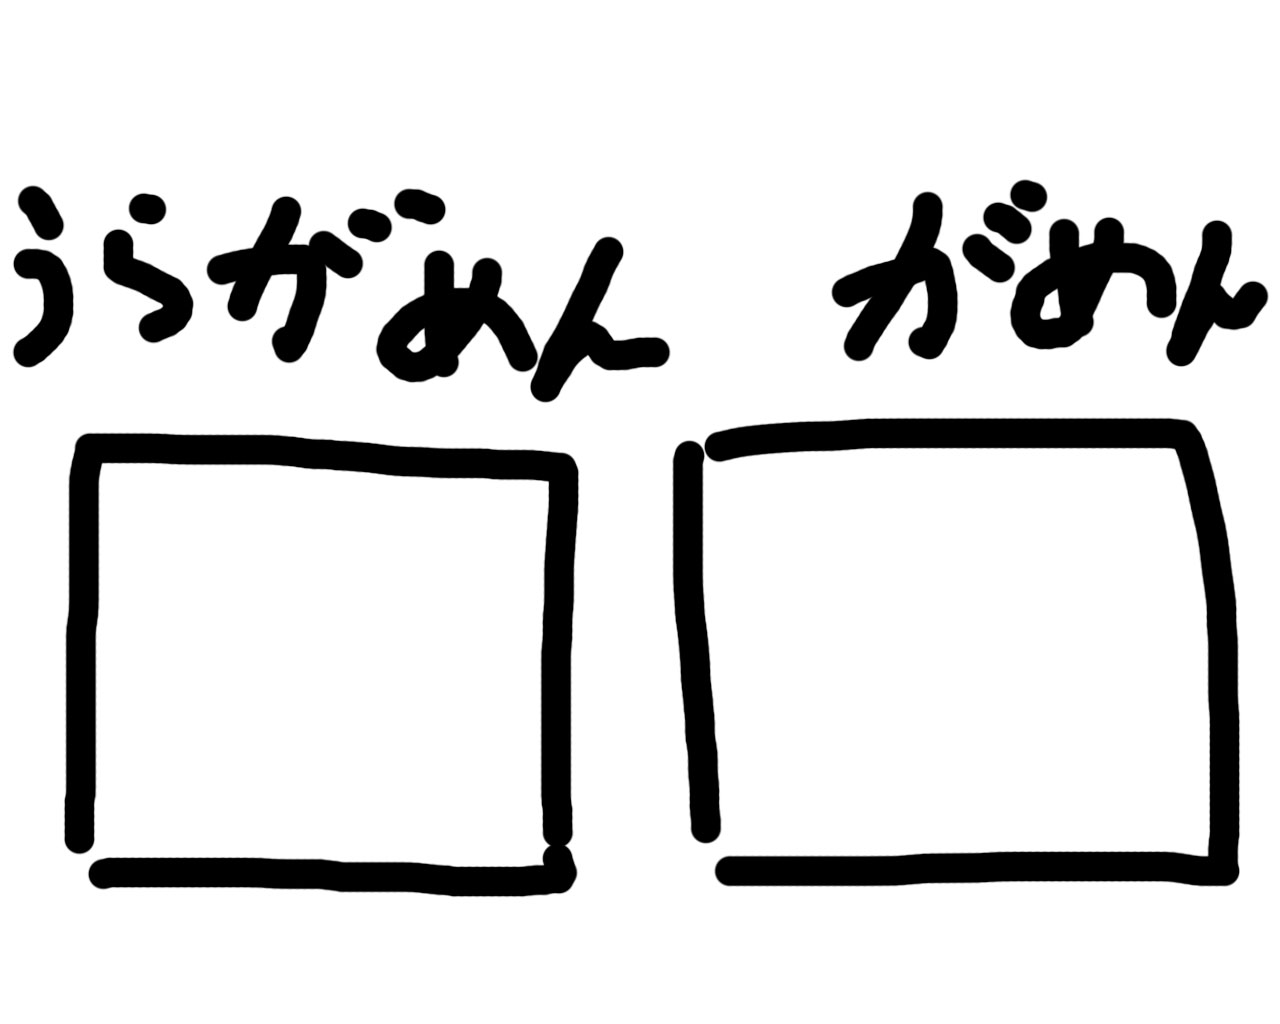 うらがめん
がめん